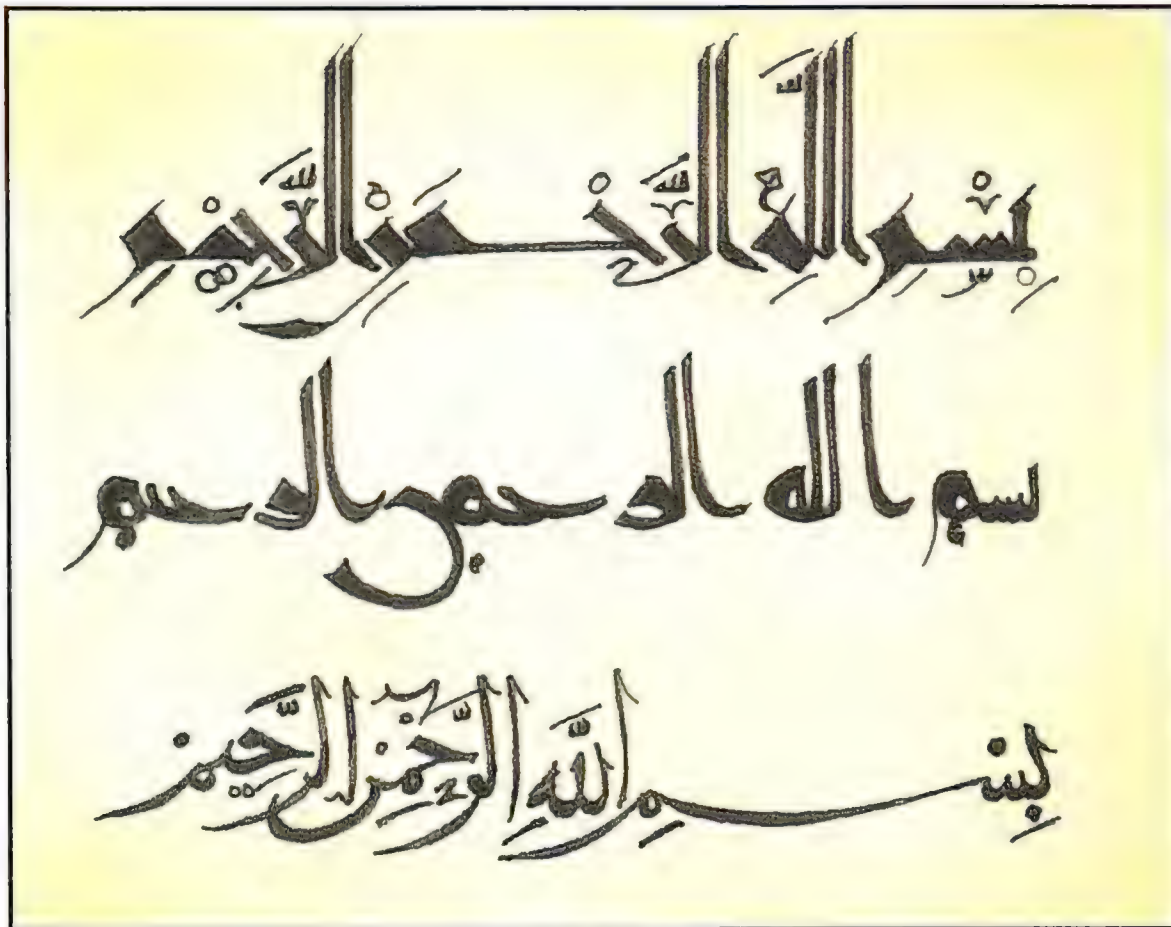 بسم الله الرحمن الرحيم
بسم الله الرحمن الرحيم
بِسْمِ اللَّهِ الرَّحْمَنِ الرَّحِيمِ